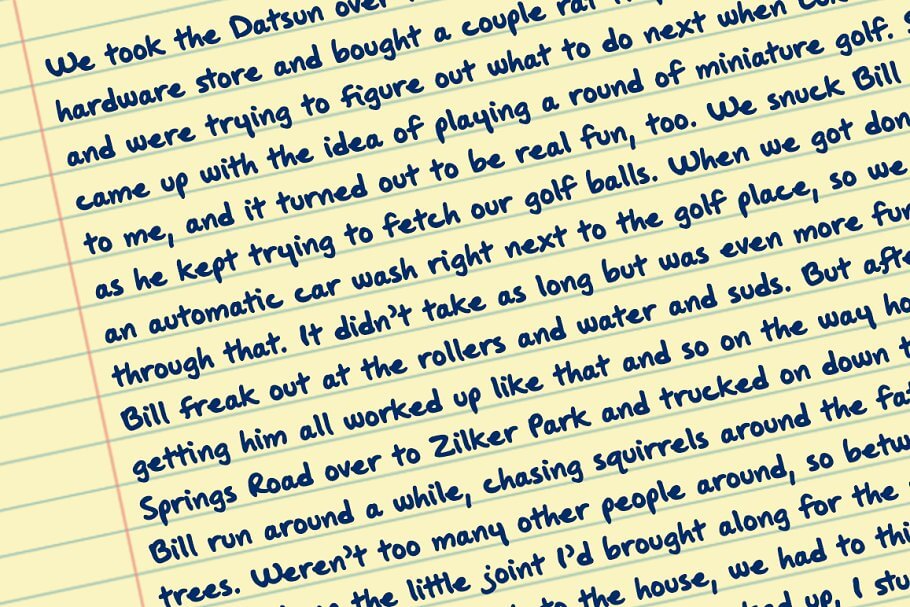 We took the Datsun over
hardware store and bought a couple rat
and were trying to figure out what to do next when
came up with the idea of playing a round of miniature golf.
to me, and it turned out to be real fun, too. We snuck Bill
as he kept trying to fetch our golf balls. When we got don
an automatic car wash right next to the golf place, so we
through that. It didn't take as long but was even more fun
Bill freak out at the rollers and water and suds. But afte
getting him all worked up like that and so on the way ho
Springs Road over to Zilker Park and trucked on down t
Bill run around a while, chasing squirrels around the fa
trees. Weren't too many other people around, so betw
the little joint I'd brought along for the
to the house, we had to thi
up, I stu